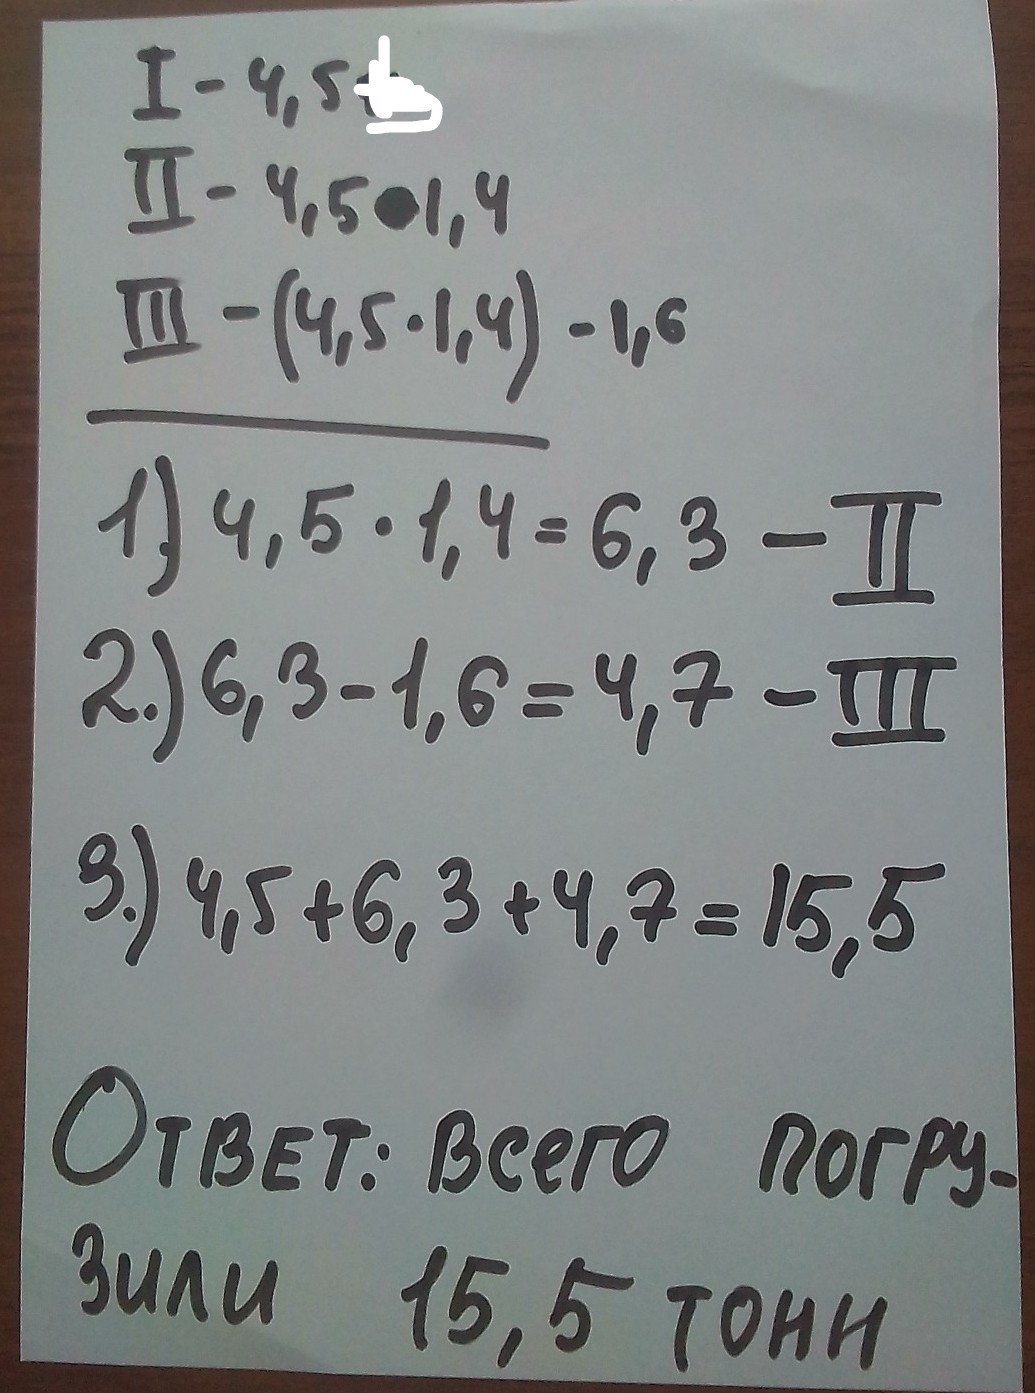 I - 4,5
II - 4,5•1,4
III - (4,5·1,4) - 1,6
1.) 4,5·1,4=6,3 - II
2.) 6,3-1,6=4,7 - III
3.) 4,5+6,3+4,7=15,5
Ответ: всего погру-
зили 15,5 тонн